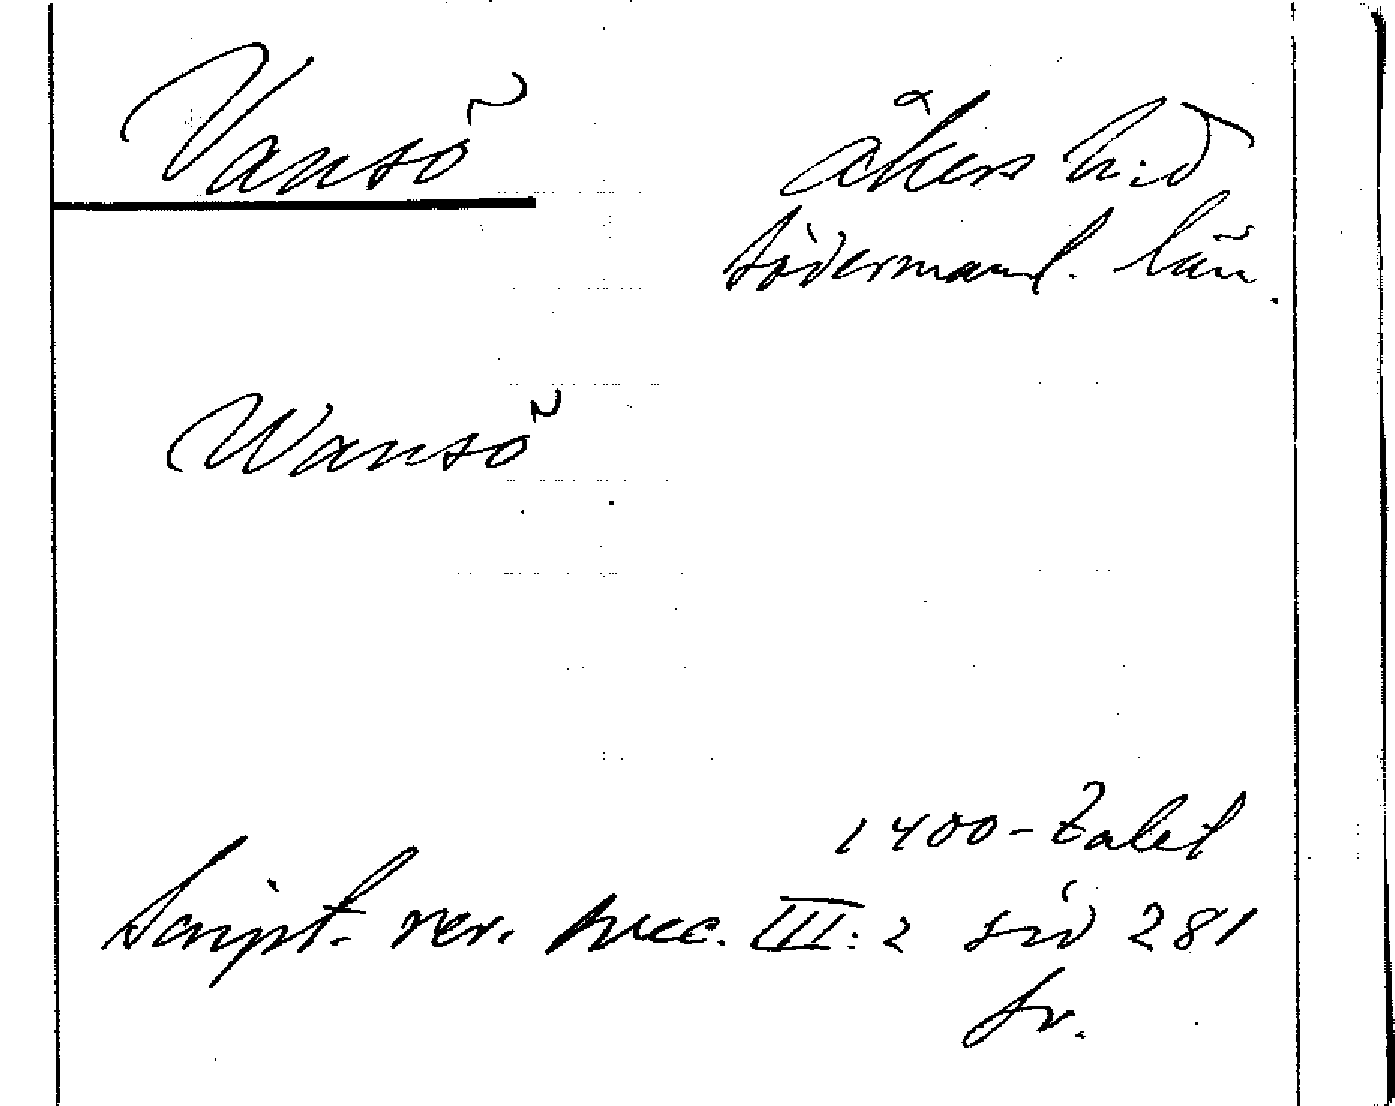 Vansö
Åkers h:d
Södermanl. län.
Wansö
1400-talet
Script. rer. svec. III: 2 sid 281
sv.